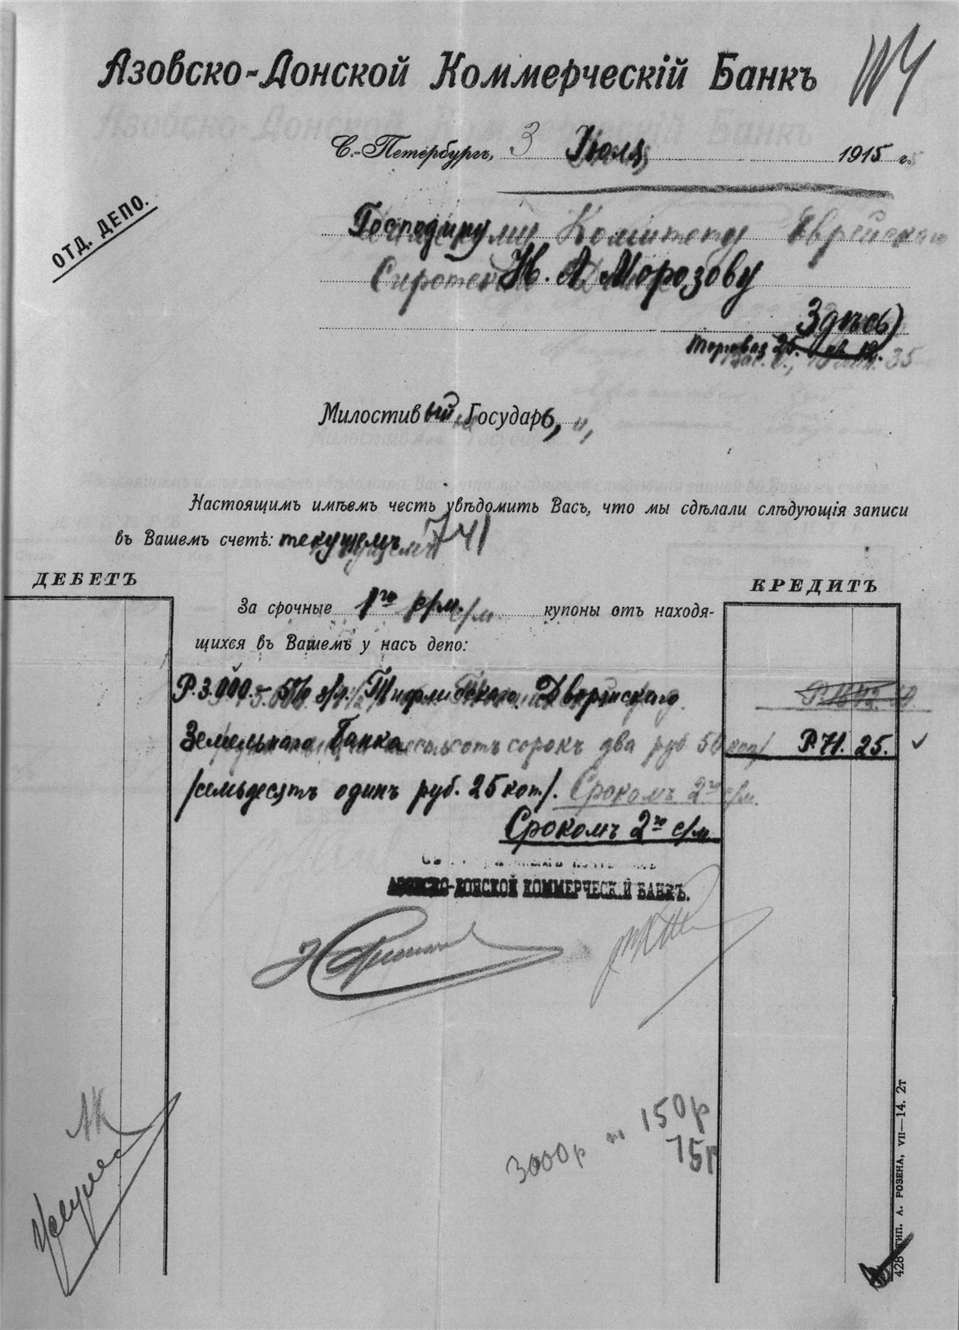 Азовско-Донской Коммерческій Банкъ
С.-Петербургъ, 3 Іюля 1915 г.
ОТД. ДЕПО.
Господину Комитету Еврейскаго
Н. А. Морозову
Здѣсь)
25. 12. 35
Милостивый Государь,
Настоящимъ имѣемъ честь увѣдомить Васъ, что мы сдѣлали слѣдующія записи
въ Вашемъ счетѣ: текущемъ 741
ДЕБЕТЪ КРЕДИТЪ
За срочные 1го с/м. с/м. купоны отъ находя-
щихся въ Вашемъ у насъ депо:
Р. 3.000.- 5% з/л. Тифлисскаго Дворянскаго
Земельнаго Банка сорокъ два руб 50 коп/ Р. 71. 25.
/семьдесятъ одинъ руб. 25 коп/. Срокомъ 2го с/м.
Срокомъ 2го с/м.
АЗОВСКО-ДОНСКОЙ КОММЕРЧЕСКІЙ БАНКЪ.
АК
3000р 150р
75р
428 ТИП. А. РОЗЕНА, VII—14. 2т